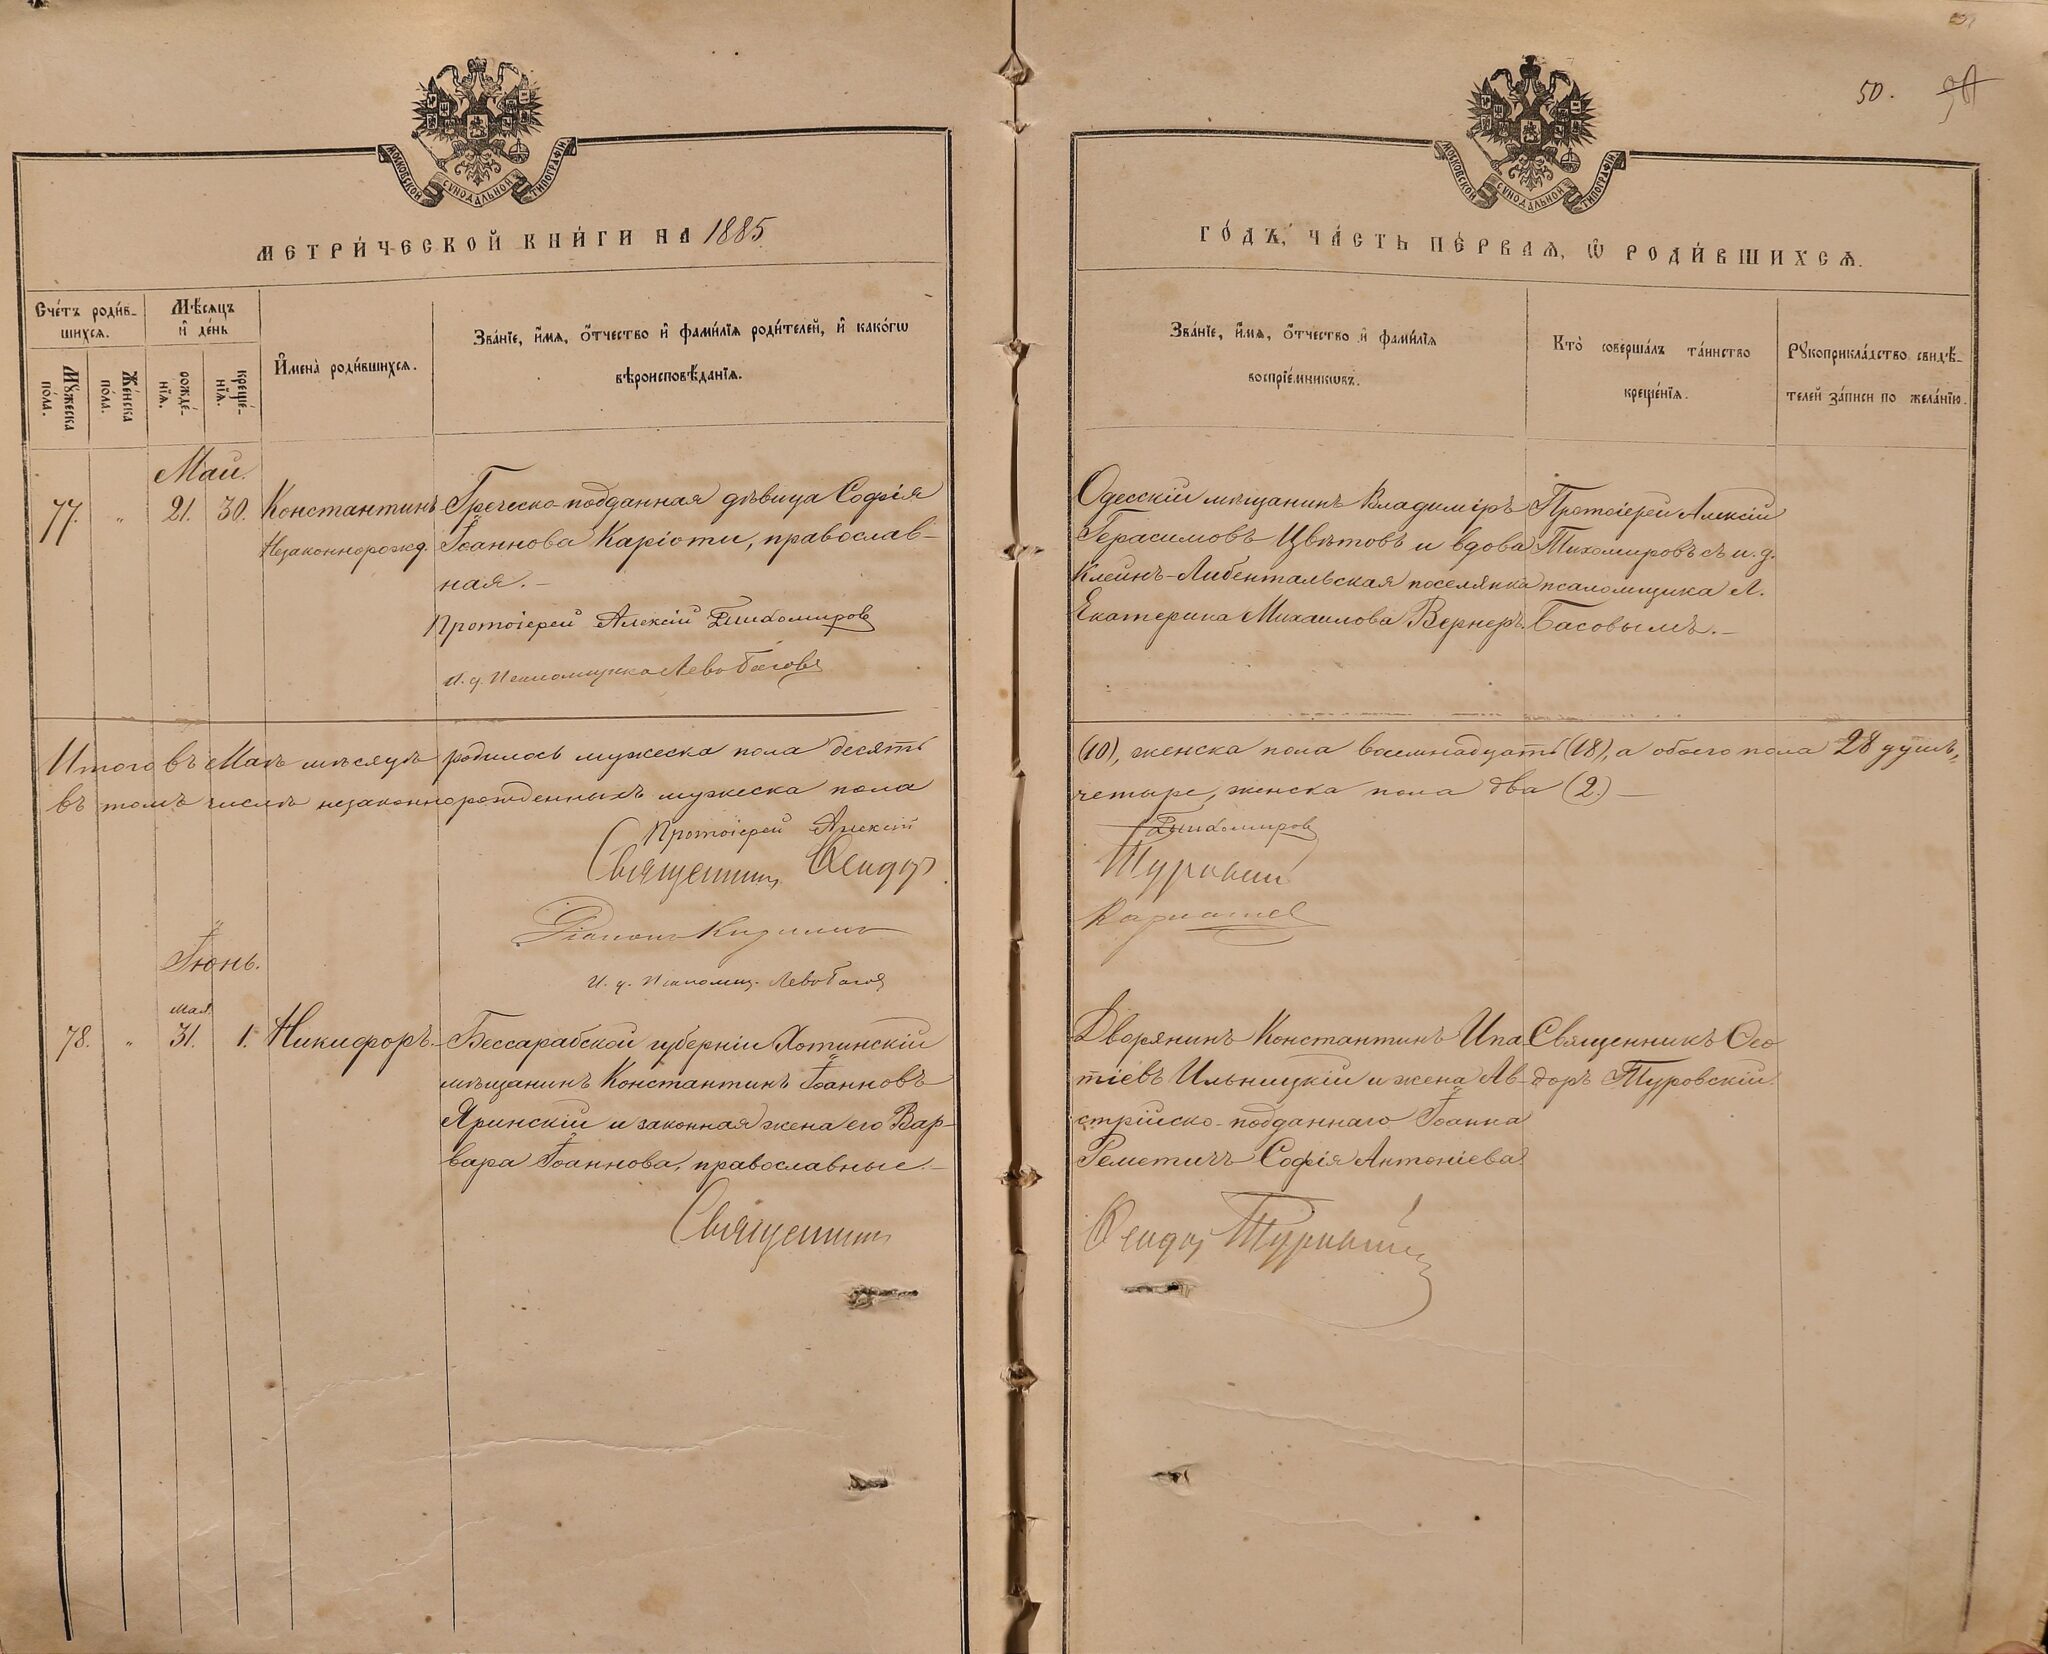 50.
МОСКОВСКОЙ СѴНОДАЛЬНОЙ ТИПОГРАФІИ
МОСКОВСКОЙ СѴНОДАЛЬНОЙ ТИПОГРАФІИ
МЕТРИ́ЧЕСКОЙ КНИ́ГИ НА 1885
ГО́ДЪ, ЧА́СТЬ ПЕ́РВАЯ, Ѡ РОДИ́ВШИХСЯ.
Сче́тъ роди́в-
шихся.
Мꙋ́жеска
по́ла.
Же́нска
по́ла.
Мѣ́сяцъ
и҆ де́нь
рожде́-
нїя.
креще́-
нїя.
И҆мена̀ роди́вшихся.
Зва́нїе, и҆́мя, ѻ҆́тчество и҆ фами́лїя роди́телей, и҆ како́гѡ
вѣроисповѣ́данїя.
Зва́нїе, и҆́мя, ѻ҆́тчество и҆ фами́лїя
воспрїе́мникѡвъ.
Кто̀ соверша́лъ та́инство
креще́нїя.
Рꙋкоприкла́дство свидѣ́-
телей за́писи по жела́нїю.
Май.
77. " 21. 30. Константинъ
Незаконнорожд.
Греческо-подданная дѣвица Софія
Іоаннова Каріоти, православ-
ная.-
Протоіерей Алексій Тихомировъ
И. д. Псаломщика Левъ Басовъ
Одесскій мѣщанинъ Владиміръ
Герасимовъ Цвѣтовъ и вдова
Клейнъ-Либентальская поселянка
Екатерина Михаилова Вернеръ.
Протоіерей Алексій
Тихомировъ съ и. д.
псаломщика Л.
Басовымъ.-
Итого въ Маѣ мѣсяцѣ родилось мужеска пола десять
(10), женска пола восемнадцать (18), а обоего пола 28 душъ,
въ томъ числѣ незаконнорожденныхъ мужеска пола
четыре, женска пола два (2.)-
Протоіерей Алексій
Тихомировъ
Священникъ Ѳеодоръ
Туровскій
Діаконъ
И. д. Псаломщ. Левъ Басовъ
Іюнь.
мая
78. " 31. 1. Никифоръ.
Бессарабской губерніи Хотинскій
мѣщанинъ Константинъ Іоанновъ
Яринскій и законная жена его Вар-
вара Іоаннова, православные.-
Священникъ
Дворянинъ Константинъ Ипа
тіевъ Ильницкій и жена Ав-
стрійско-подданнаго Іоанна
Реметичъ Софія Антоніева.
Священникъ Ѳео
доръ Туровскій.
Ѳеодоръ Туровскій